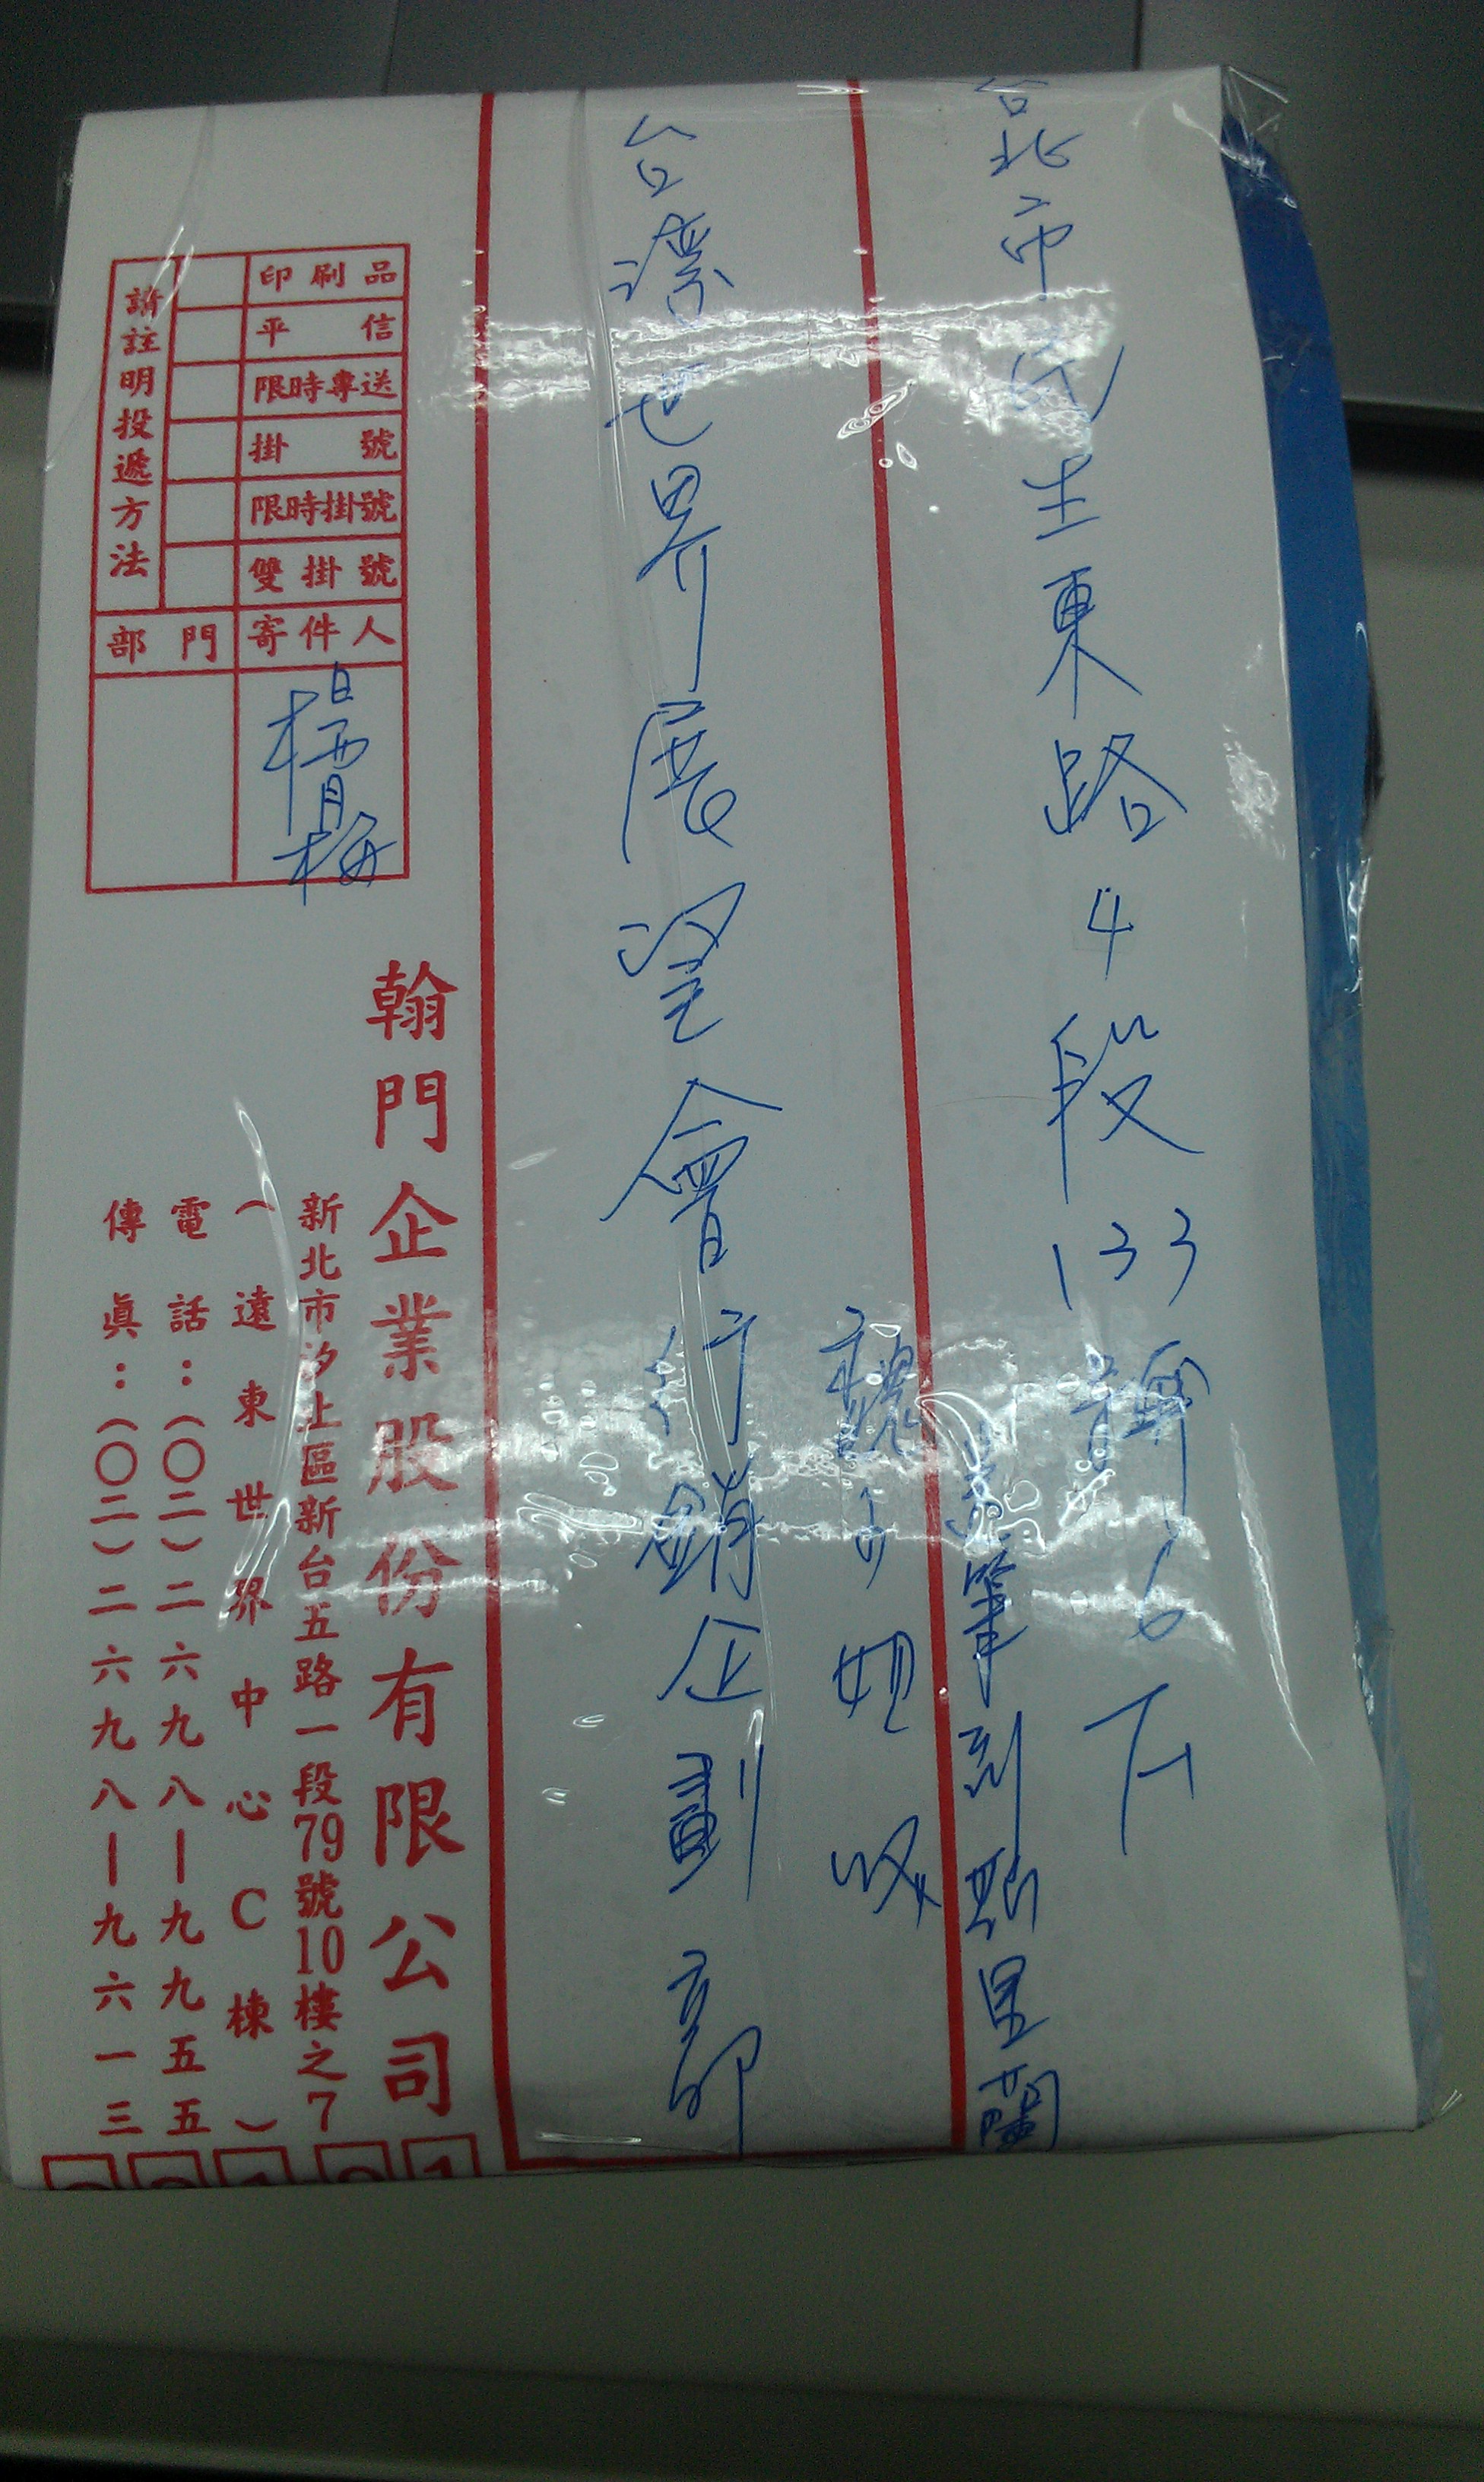 台北市民生東路4段133號6F
台灣世界展望會行銷企劃部
收
翰門企業股份有限公司
新北市汐止區新台五路一段79號10樓之7
（遠東世界中心C棟）
電話：（〇二）二六九八－九九五五
傳真：（〇二）二六九八－九六一三
印刷品
平信
限時專送
掛號
限時掛號
雙掛號
請註明投遞方法
寄件人
部門